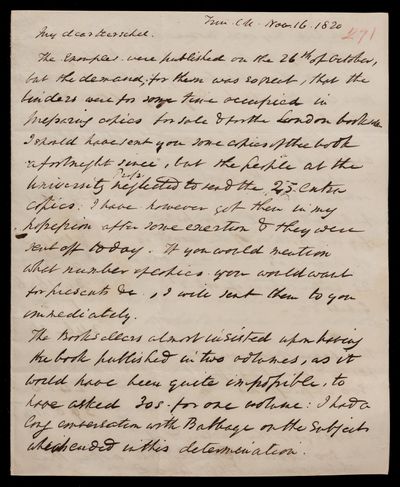 Trin. Col. Nov. 16. 1820
271
My dear Herschel.
The Examples were published on the 26th of October,
but the demand for them was so great, that the
binders were for some time occupied in
preparing copies for sale & for the London booksellers
I should have sent you some copies of the book
a fortnight since, but the people at the
University Press neglected to send the 25 extra
copies: I have however got them in my
possession after some exertion & they were
sent off to day. If you would mention
what number of copies you would want
for presents &c., I will send them to you
immediately.
The Booksellers almost insisted upon having
the book published in two volumes, as it
would have been quite impossible, to
have asked 30s. for one volume: I had a
long conversation with Babbage on the subject
which ended in this determination.